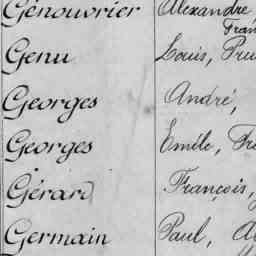 Génouvrier Alexandre
Fran
Genu Louis, Pru
Georges André,
Georges Émile, Fr
Gérard François,
Germain Paul, A